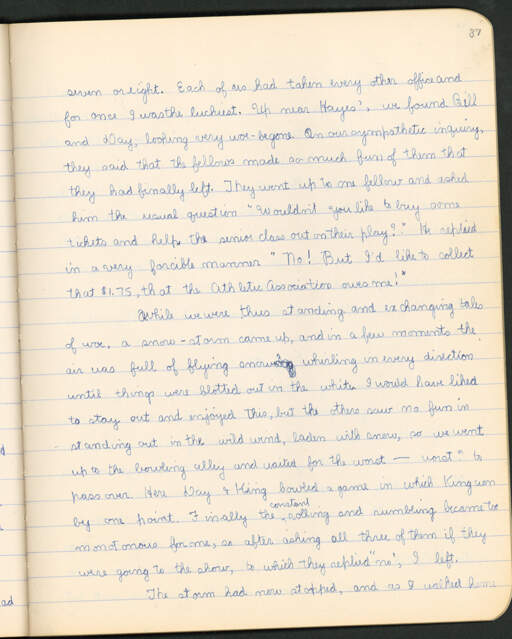 37
seven or eight. Each of us had taken every other office and
for once I was the luckiest. Up near Hayes', we found Bill
and Day, looking very woe-begone. On our sympathetic inquiry,
they said that the fellows made so much fun of them that
they had finally left. They went up to one fellow and asked
him the usual question "Wouldn't you like to buy some
tickets and help the senior class out on their play?" He replied
in a very forcible manner "No! But I'd like to collect
that $1.75, that the Athletic Association owes me!"
While we were thus standing and exchanging tales
of woe, a snow-storm came up, and in a few moments the
air was full of flying snow whirling in every direction
until things were blotted out in the white. I would have liked
to stay out and enjoyed this, but the others saw no fun in
standing out in the wild wind, laden with snow, so we went
up to the bowling alley and waited for the worst — worst" to
pass over. Here Day & King bowled a game in which King won
by one point. Finally the constant rolling and rumbling became too
monotonous for me, so after asking all three of them if they
were going to the show, to which they replied "no", I left.
The storm had now stopped, and as I walked home
d
ad